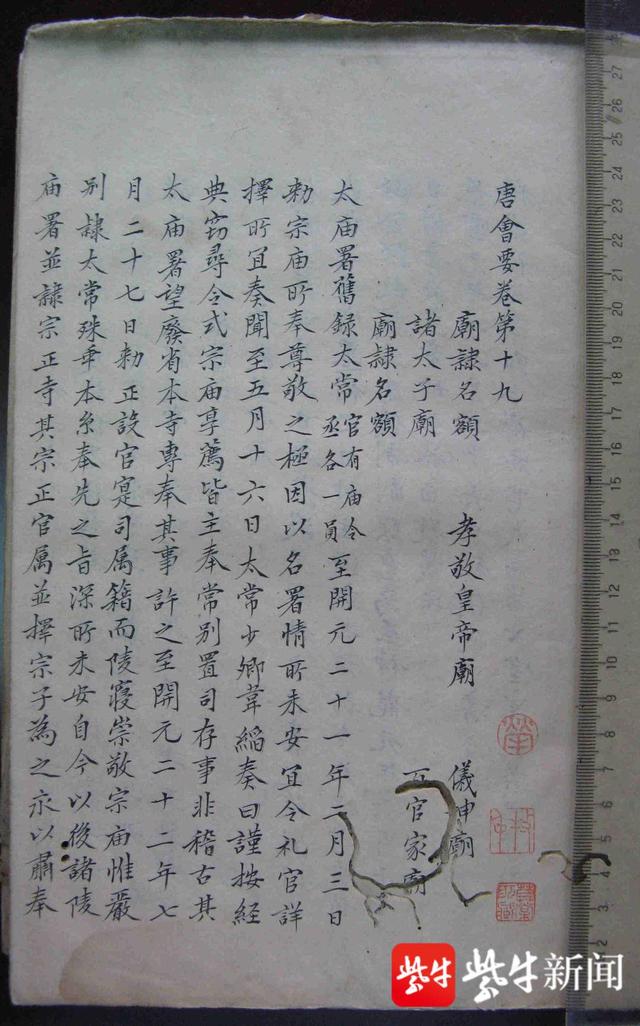 唐會要卷第十九
廟隸名額 孝敬皇帝廟 儀坤廟
諸太子廟 百官家廟
廟隸名額
太庙署舊録太常官有庙令丞各一員至開元二十一年二月三日
勑宗庙所奉尊敬之極因以名署情所未安宜令礼官詳
擇所宜奏聞至五月十六日太常少卿韋縚奏曰謹按經
典窃尋令式宗庙享薦皆主奉常别置司存事非稽古其
太庙署望廢省本寺專奉其事許之至開元二十二年七
月二十七日勑正設官寔司属籍而陵寢崇敬宗庙惟嚴
别隸太常殊乖本系奉先之旨深所未安自今以後諸陵
庙署並隸宗正寺其宗正官属並擇宗子為之永以肅奉
紫牛 紫牛新闻
27
26
25
24
23
22
21
20
19
18
17
16
15
14
13
12
11
10
9
8
7
6
5
4
3
2